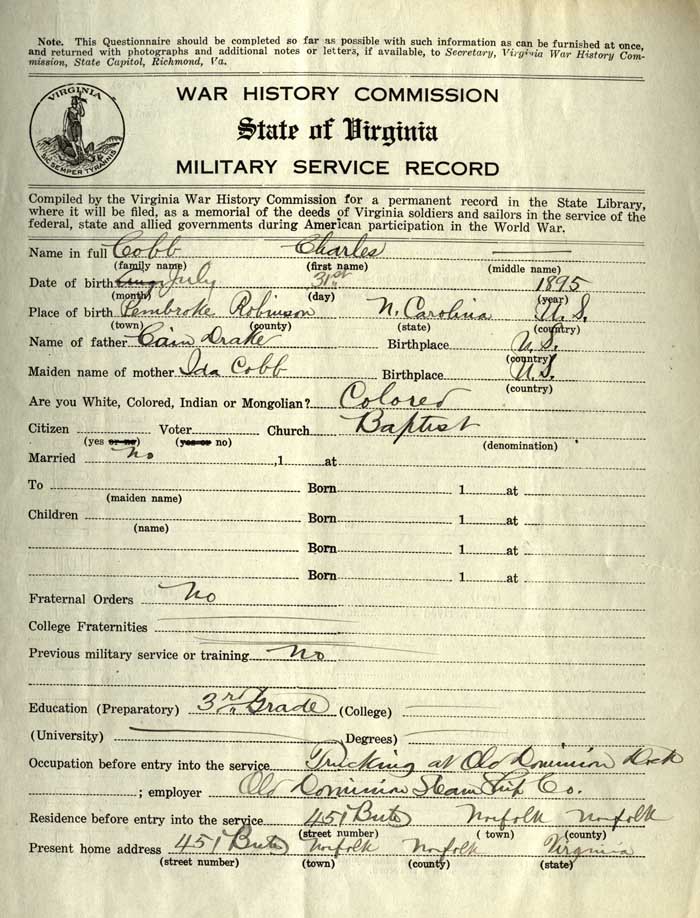 Note. This Questionnaire should be completed so far as possible with such information as can be furnished at once,
and returned with photographs and additional notes or letters, if available, to Secretary, Virginia War History Com-
mission, State Capitol, Richmond, Va.
VIRGINIA
SIC SEMPER TYRANNIS
WAR HISTORY COMMISSION
State of Virginia
MILITARY SERVICE RECORD
Compiled by the Virginia War History Commission for a permanent record in the State Library,
where it will be filed, as a memorial of the deeds of Virginia soldiers and sailors in the service of the
federal, state and allied governments during American participation in the World War.
Name in full Cobb Charles
(family name) (first name) (middle name)
Date of birth July 31st 1895
(month) (day) (year)
Place of birth Pembroke Robinson N. Carolina U. S.
(town) (county) (state) (country)
Name of father Cain Drake Birthplace U. S.
(country)
Maiden name of mother Ida Cobb Birthplace U. S.
(country)
Are you White, Colored, Indian or Mongolian? Colored
Citizen Voter Church Baptist
(yes or no) (yes or no) (denomination)
Married No ,1 at
To Born 1 at
(maiden name)
Children Born 1 at
(name)
Born 1 at
Born 1 at
Fraternal Orders No
College Fraternities
Previous military service or training No
Education (Preparatory) 3rd Grade (College)
(University) Degrees)
Occupation before entry into the service Trucking at Old Dominion Dock
; employer Old Dominion Steam Ship Co.
Residence before entry into the service 451 Bute Norfolk Norfolk
(street number) (town) (county)
Present home address 451 Bute Norfolk Norfolk Virginia
(street number) (town) (county) (state)